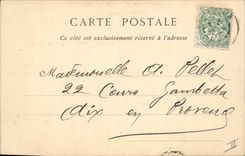 CARTE POSTALE
Ce côté est exclusivement réservé à l'adresse
Mademoiselle A. Pellet
22 Cours Gambetta
Aix en Provence
II